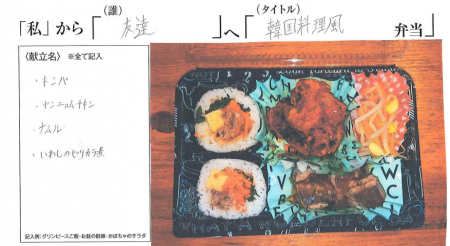 (誰) (タイトル)
「私」から「友達」へ「韓国料理風 弁当」
〈献立名〉 ※全て記入
・キンパ
・ヤンニョムチキン
・ナムル
・いわしのピリカラ煮
記入例:グリンピースご飯・お麩の酢豚・かぼちゃのサラダ